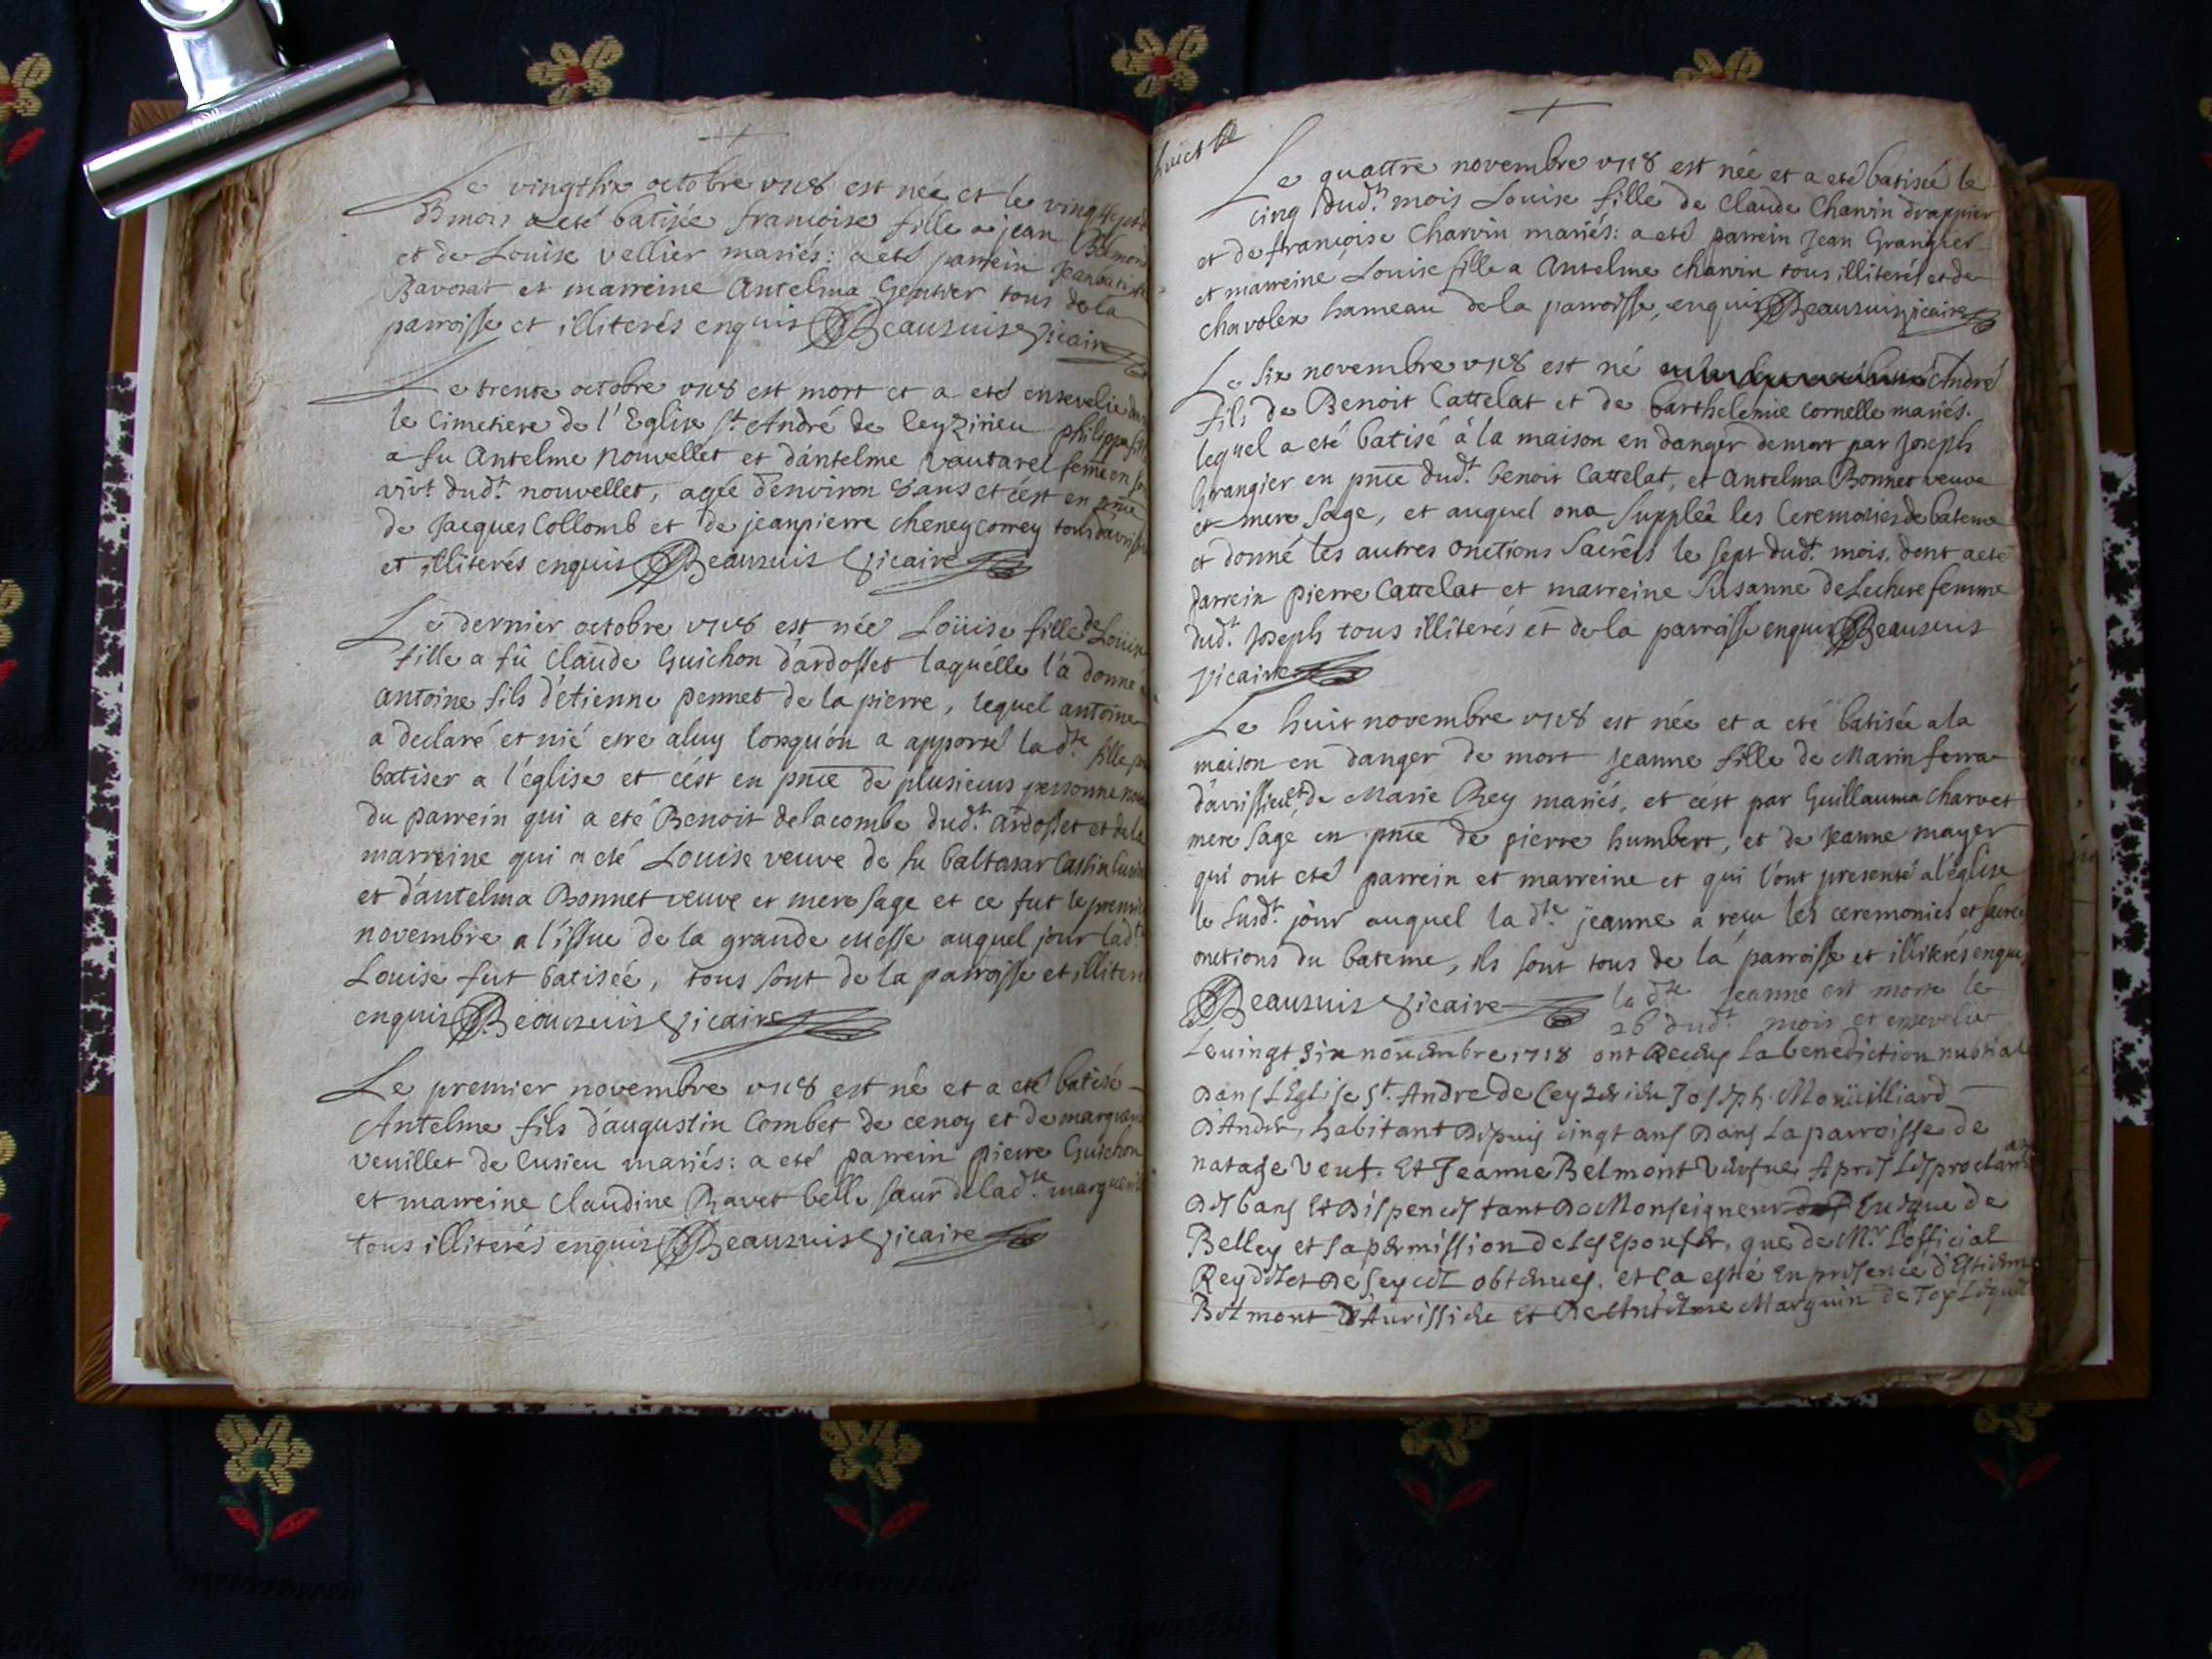 Le vingtsix octobre 1718 est née et le vingtsept
mois a eté batisée francoise fille a jean Belmont
et de Louise vellier mariés: a eté parrein Jeanbatiste
Ravorat et marreine Antelma Gentier tous de la
parroisse et illiterés enquis Beausuis Vicaire
Le trente octobre 1718 est mort et a eté ensevelie dans
le Cimetiere de l'Eglise St. André de Ceyzirieu philippa
a fu Antelme Nouvellet et d'antelme Vautarel feme en
vivt. dudt. nouvellet, agée d'environ ans et c'est en pnce
de Jacques Collomb et de jeanpierre cheney correy tous
et illiterés enquis Beausuis Vicaire
Le dernier octobre 1718 est née Loüise fille de Louise
fille a fû Claude Guichon d'ardosset laquelle l'a donné a
antoine fils d'étienne pennet de la pierre, lequel antoine
a declaré et nié etre aluy lorsqu'on a apporté la dte. fille
batiser a l'église et c'ést en pnce de plusieurs personne
du parrein qui a eté Benoit delacombe dudt. Ardosset et de la
marreine qui a eté Louise veuve de fu baltasar Castin
et d'antelma Bonnet veuve et mere sage et ce fut le premier
novembre a l'issue de la grande messe auquel jour ladte.
Louise fut batisée, tous sont de la parroisse et illiterés
enquis Beausuis Vicaire
Le premier novembre 1718 est né et a eté batisé
Antelme fils d'augustin Combet de cenoy et de marguerite
veuillet de lusieu mariés: a eté parrein pierre Guichon
et marreine Claudine Ravet belle sœur deladte. marguerite
tous illiterés enquis Beausuis Vicaire
Le quattre novembre 1718 est née et a eté batisée le
cinq dudt. mois Louise fille de Claude Charvin drappier
et de françoise Charvin mariés: a eté parrein Jean Grangier
et marreine Louise fille a Antelme charvin tous illiterés et de
chavolex hameau de la parroisse, enquis Beausuis vicaire
Le six novembre 1718 est né André
fils de Benoit Cattelat et de barthelemie cornelle mariés.
lequel a eté batisé à la maison en danger de mort par Joseph
Grangier en pnce dudt. benoit Cattelat, et Antelma Bonnet veuve
et mere sage, et auquel ona suppléé les Ceremonies de bateme
et donné les autres onctions Sacrées le sept dudt. mois, dont a eté
parrein pierre Cattelat et marreine Susanne deLechere femme
dudt. Joseph tous illiterés et de la parroisse enquis Beausuis
Vicaire
Le huit novembre 1718 est née et a eté batisée a la
maison en danger de mort Jeanne fille de Marin ferra
d'avrissieu et de Marie Rey mariés, et c'ést par Guillauma Charvet
mere sage en pnce de pierre humbert, et de Jeanne mayer
qui ont eté parrein et marreine et qui l'ont presenté a l'église
le susdt. jour auquel la dte. jeanne a reçu les ceremonies et sacre
onctions du bateme, ils sont tous de la parroisse et illiterés enquis
Beausuis Vicaire la dte. Jeanne est morte le
26 dudt. mois et ensevelie
Levingt six novembre 1718 ont Receus La benediction nubtial
Dans L'Eglise St. Andre de Ceyzerieu Joseph Moüilliard
D'Andert, habitant Depuis vingt ans Dans La parroisse de
natage veuf. Et Jeanne Belmont veufue Apres Les proclam
Des bans Et Dispences tant De Monseigneur Evesque de
Belley et sa permission de les epouser, que de Mr. L'official
Reydelet de Seyssel obtenues. et ca esté En présence d'Estienne
Belmont D'Aurissieu Et De Antelme Marguin de